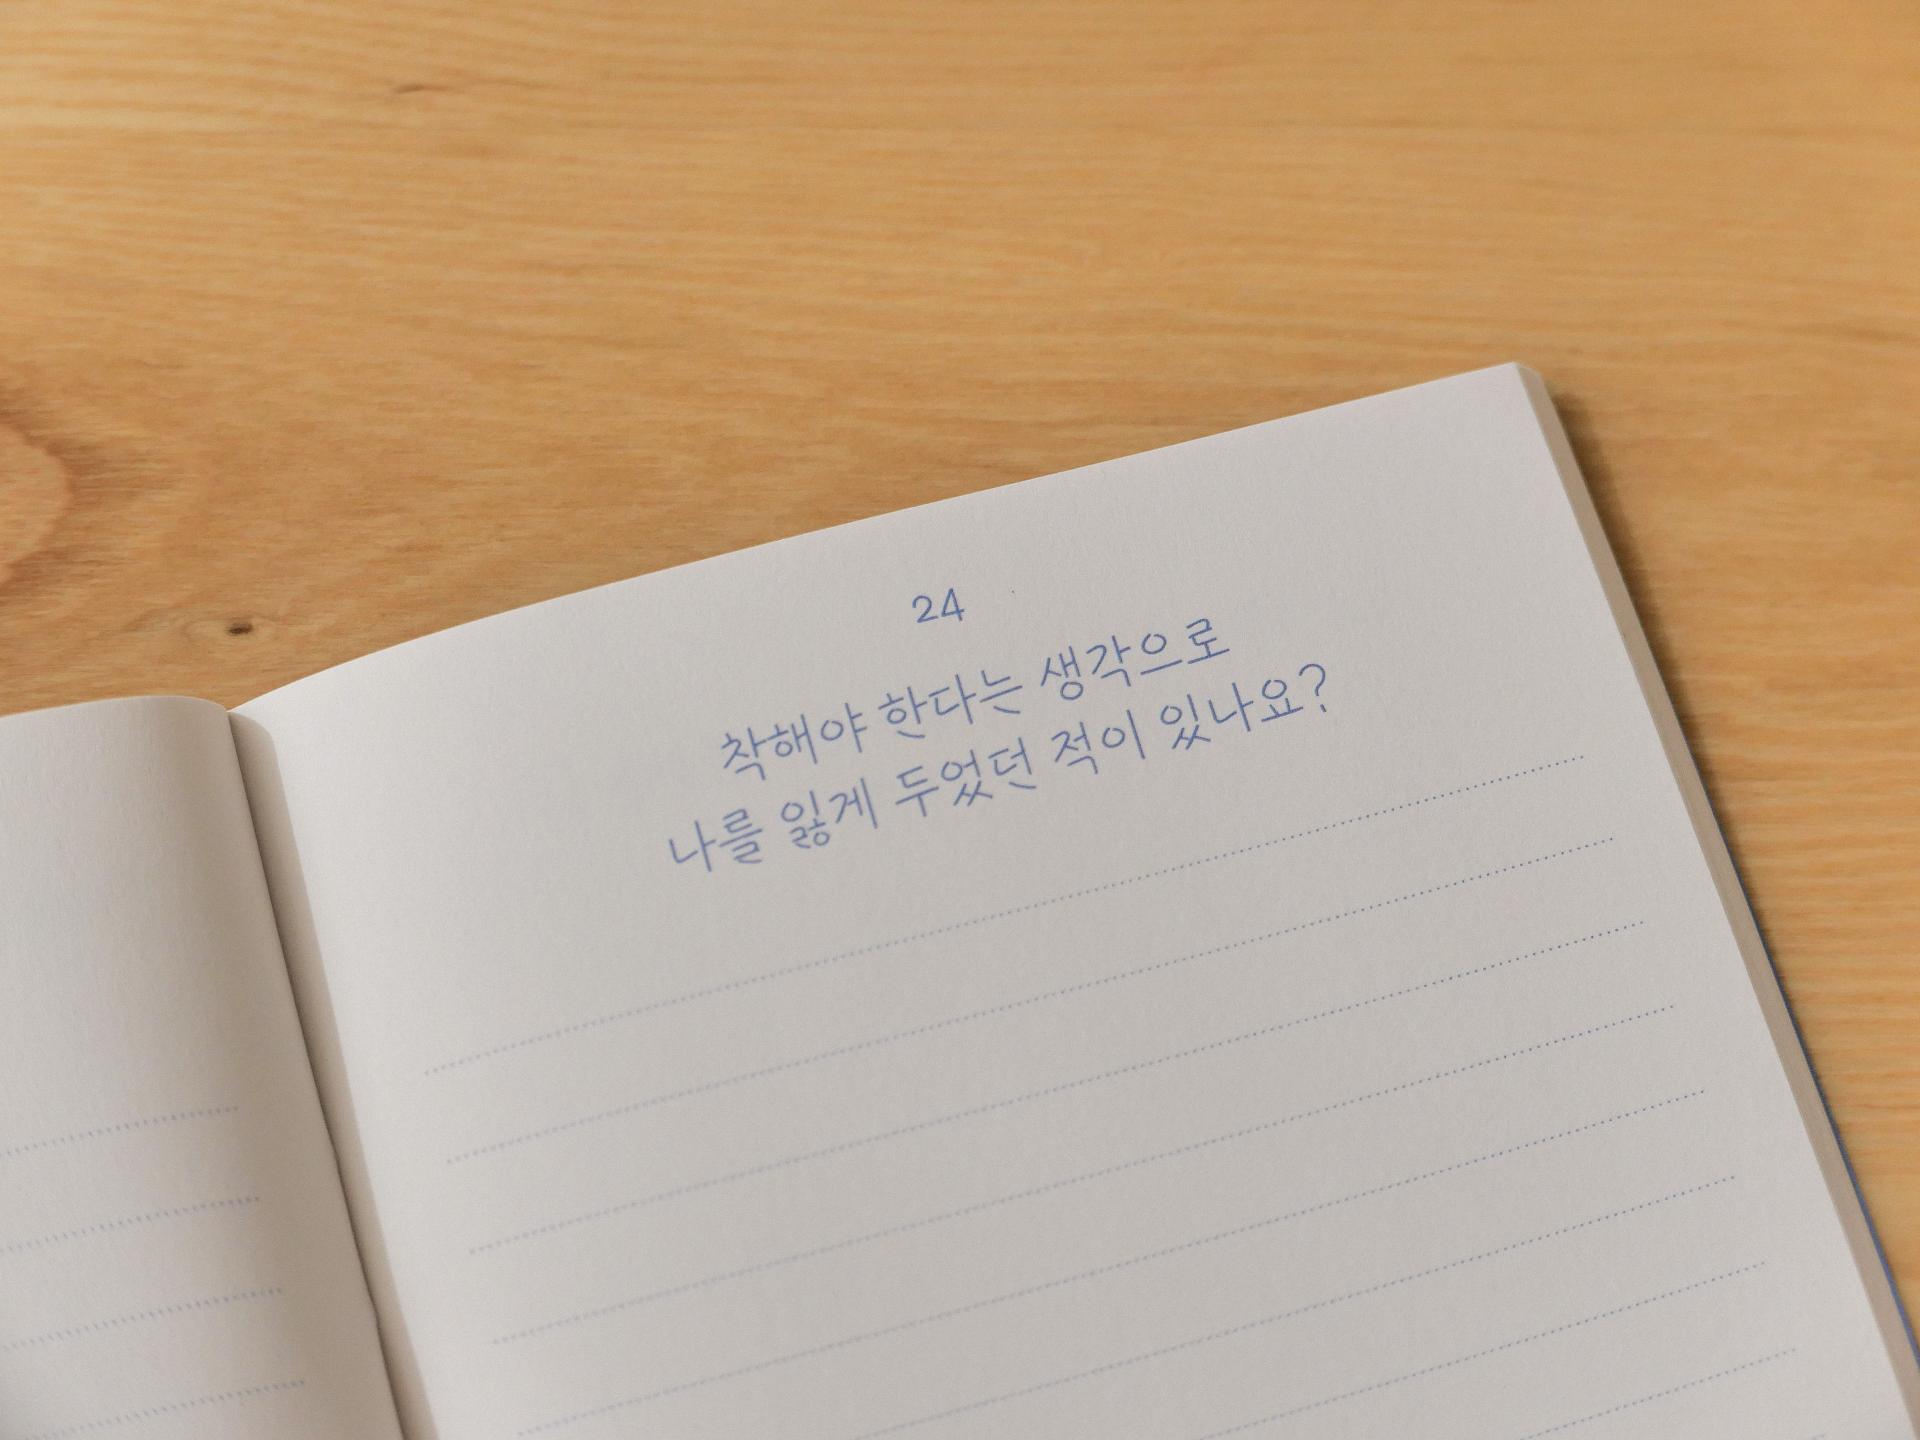 24
착해야 한다는 생각으로
나를 잃게 두었던 적이 있나요?